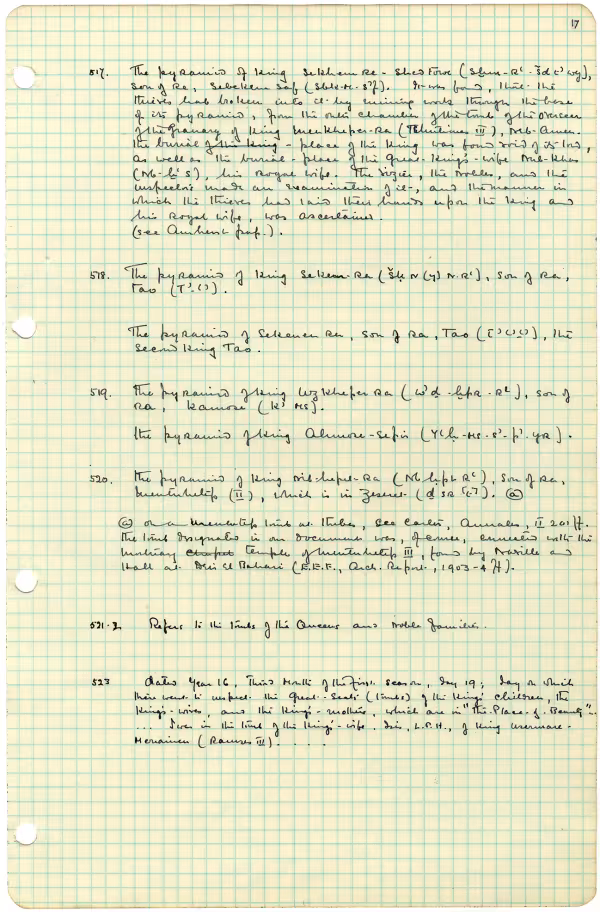 17
517. The pyramid of King Sekhem Re - Shed Towe (Sḫm - Rʿ - Šd tʾ wy),
Son of Re, Sebekem Saf (Sbk-M-Sʾf). It was found, that the
thieves had broken into it by mining work through the base
of its pyramid, from the outer chamber of the tomb of the Overseer
of the Granary of King Menkheper-Ra (Thutmes III), Neb-Amen.
The burial-place of the King was found void of its lord,
as well as the burial-place of the Great King's-wife Nub-khas
(Nb-ḫʿ S), his Royal wife. The Vizier, the Nobles, and the
inspectors made an examination of it, and the manner in
which the thieves had laid their hands upon the King and
his Royal wife, was ascertained.
(see Amherst pap.).
518. The pyramid of King Seken-Ra (Šḳ N (y) N. Rʿ), Son of Ra,
Tao (Tʾ-ʿʾ).
The pyramid of Sekenen Ra, Son of Ra, Tao (Tʾ ʿʾ ʿʾ), the
second King Tao.
519. The pyramid of King Wzkheper Ra (Wʾḏ-ḫpR - Rʿ), Son of
Ra, Kamose (Kʾ MS).
The pyramid of King Ahmose-Sepir (Yʿḥ-MS-Sʾ-pʾ-yR).
520. The pyramid of King Neb-hepet-Ra (Nb ḥpt Rʿ), Son of Ra,
Mentuhetep (II), which is in Zeseret (ḏ SR [t]). @
@ on a Mentuhetep tomb at Thebes, see Carter, Annales, II 201 ff.
The tomb designated in our document was, of course, connected with the
mortuary temple of Mentuhetep III, found by Naville and
Hall at Deir El Bahari (E.E.F., Arch. Report, 1903-4 ff).
521-2 Refers to the tombs of the Queens and Noble families.
523 dated Year 16, Third Month of the First Season, day 19; day on which
there went to inspect the Great Seats (tombs) of the King's children, the
King's-wives, and the King's-mothers, which are in "the Place of Beauty"..
... was in the tomb of the King's-wife Isis, L.P.H., of King Usermare-
Meriamen (Ramses III). . . . .